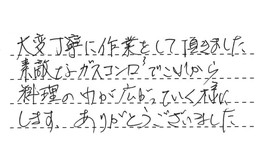 大変丁寧に作業をして頂きました
素敵なガスコンロでこれから
料理の巾が広がっていく様に
します。ありがとうございました